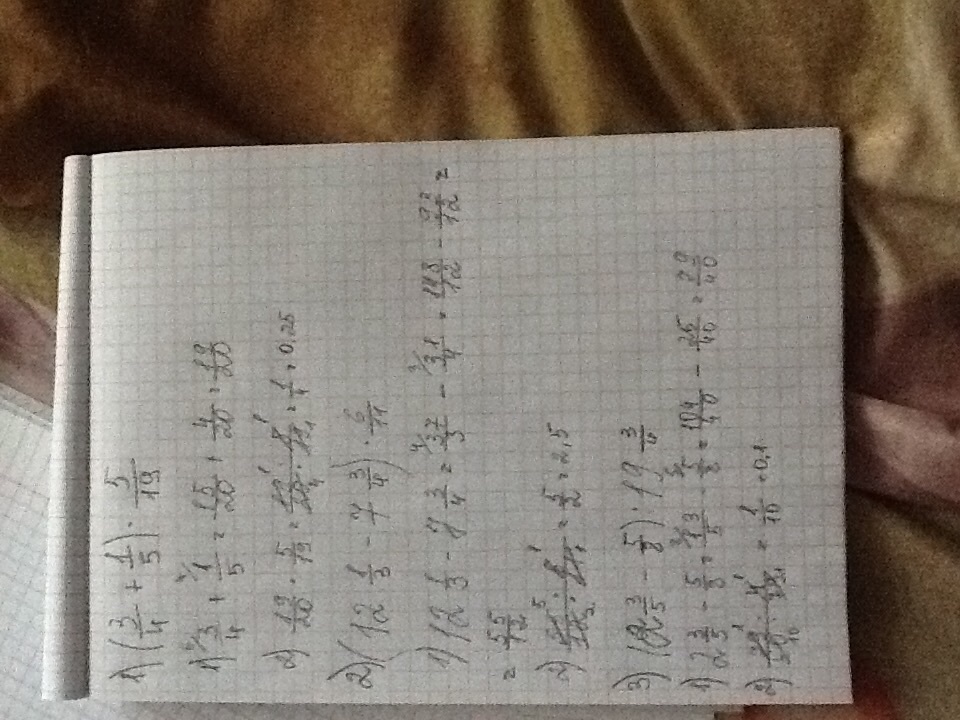 1) (3/4 + 1/5) · 5/19
1) 3/4 + 1/5 = 15/20 + 4/20 = 19/20
2) 19/20 · 5/19 = 19/20 · 5/19 = 1/4 = 0,25
2) (12 1/3 - 7 3/4) · 6/11
1) 12 1/3 - 7 3/4 = 37/3 - 31/4 = 148/12 - 93/12 =
= 55/12
2) 55/12 · 6/11 = 5/2 = 2,5
3) (2 3/5 - 5/8) · 19 3/4
1) 2 3/5 - 5/8 = 13/5 - 5/8 = 104/40 - 25/40 = 79/40
2) = 1/10 = 0,1